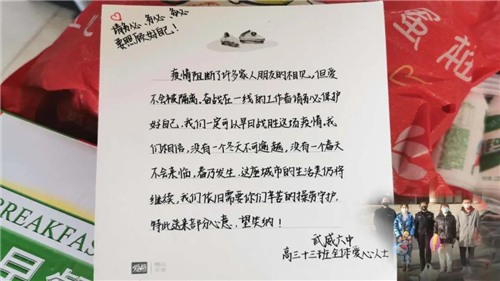 请务必、务必、务必
要照顾好自己！
疫情阻断了许多家人朋友的相见。但爱
不会被隔离。奋战在一线的工作者请务必保护
好自己,我们一定可以早日战胜这场疫情。我
们相信,没有一个冬天不可逾越,没有一个春天
不会来临,春乃发生,这座城市的生活仍将
继续,我们依旧需要你们辛苦的操劳守护,
特此送来部分心意,望笑纳！
武威六中
高三十三班全体爱心人士
BREAKFAS
早
蛋